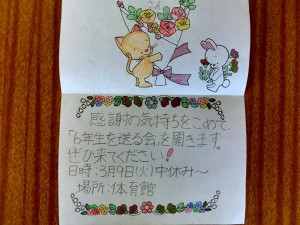 感謝の気持ちをこめて、
「6年生を送る会」を開きます。
ぜひ来てください!
日時:3月9日(火)中休み〜
場所:体育館